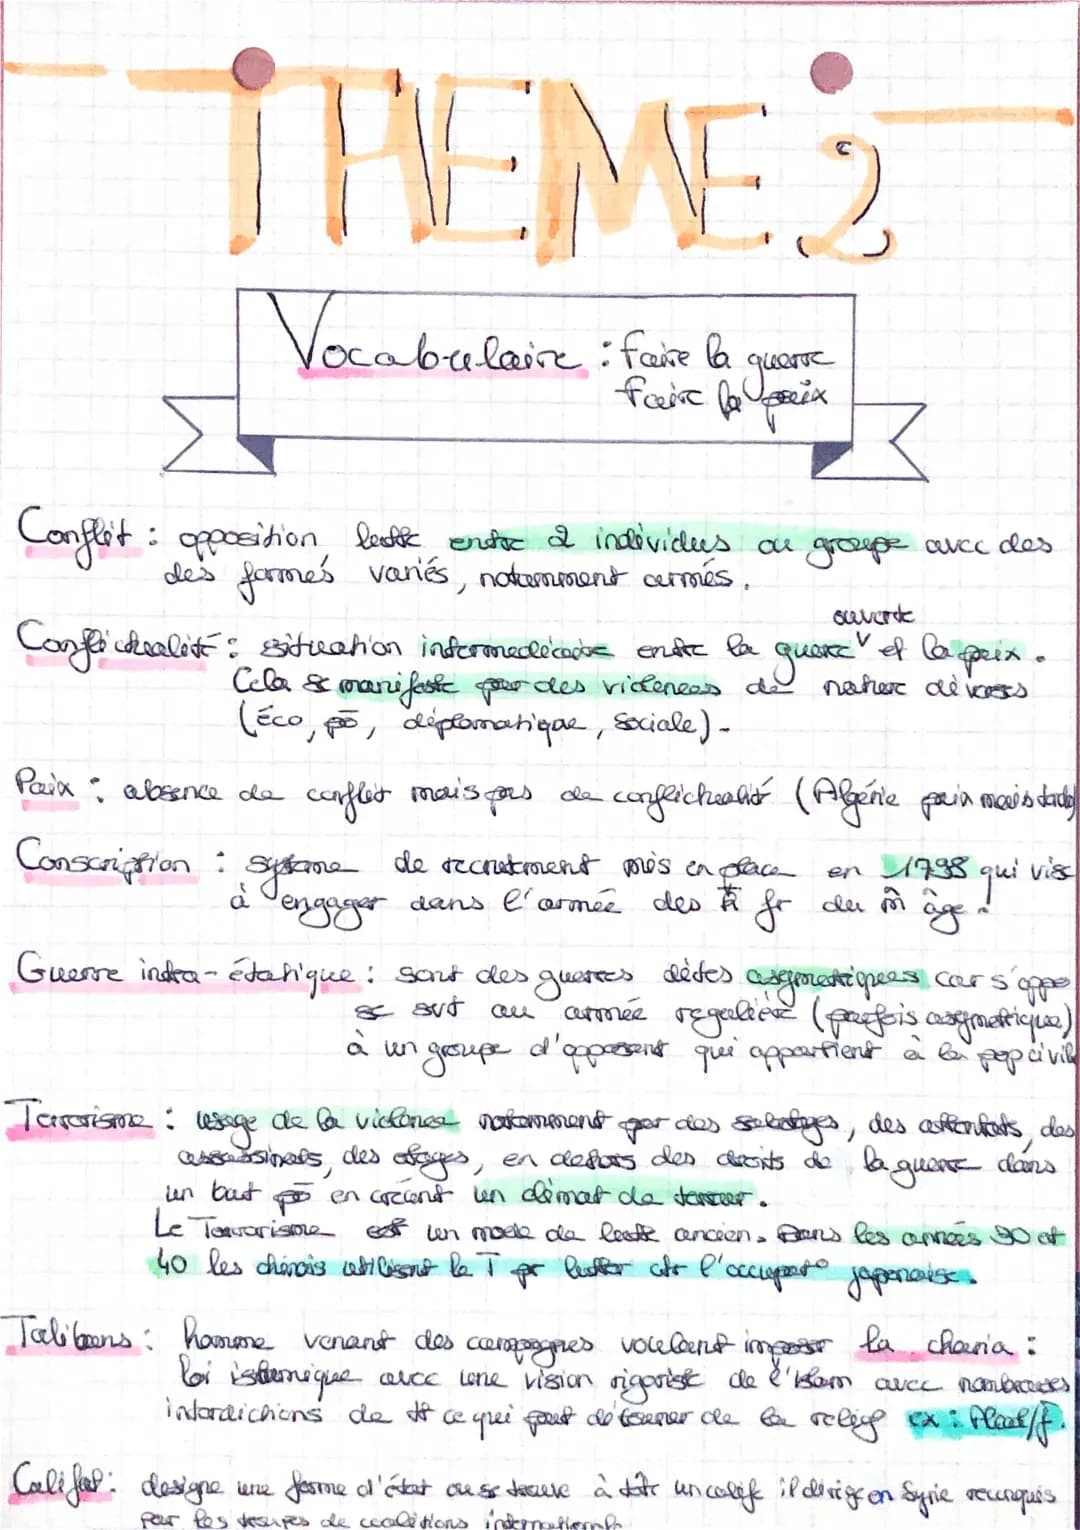 THEME 2
Vocabulaire : faire la guerre
faire la paix
Conflit : opposition, lutte entre 2 individus ou groupe avec des
des formes variés, notamment armés.
ouverte
Conflictualité : situation intermédiaire entre la guerre v et la paix.
Cela se manifeste par des violences de nature divers
(éco, pō, diplomatique, sociale).
Paix : absence de conflit mais pas de conflictualité (Algérie paix mais
Conscription : système de recrutement mis en place en 1798 qui vise
à engager dans l'armée des fr du m̂ âge.
Guerre intra-étatique : sont des guerres dites asymétriques car s'oppo
se svt au armée régulière (parfois asymétrique)
à un groupe d'opposent qui appartient à la pop civile
Terrorisme : usage de la violence notamment par des sabotages, des attentats, des
assassinats, des otages, en dehors des droits de la guerre dans
un but pō en créant un climat de terreur.
Le Terrorisme est un mode de lutte ancien. Dans les années 30 et
40 les chinois utilisent le T pr lutter ctr l'occupat° japonaise.
Talibans : homme venant des campagnes voulant imposer la charia :
loi islamique avec une vision rigoriste de l'islam avec nombreuses
interdictions de tt ce qui peut détourner de la relig ex : Alcool/f.
Califat : désigne une forme d'état ou se trouve à tête un calife il dirige en Syrie reconquis
par les troupes de coalitions